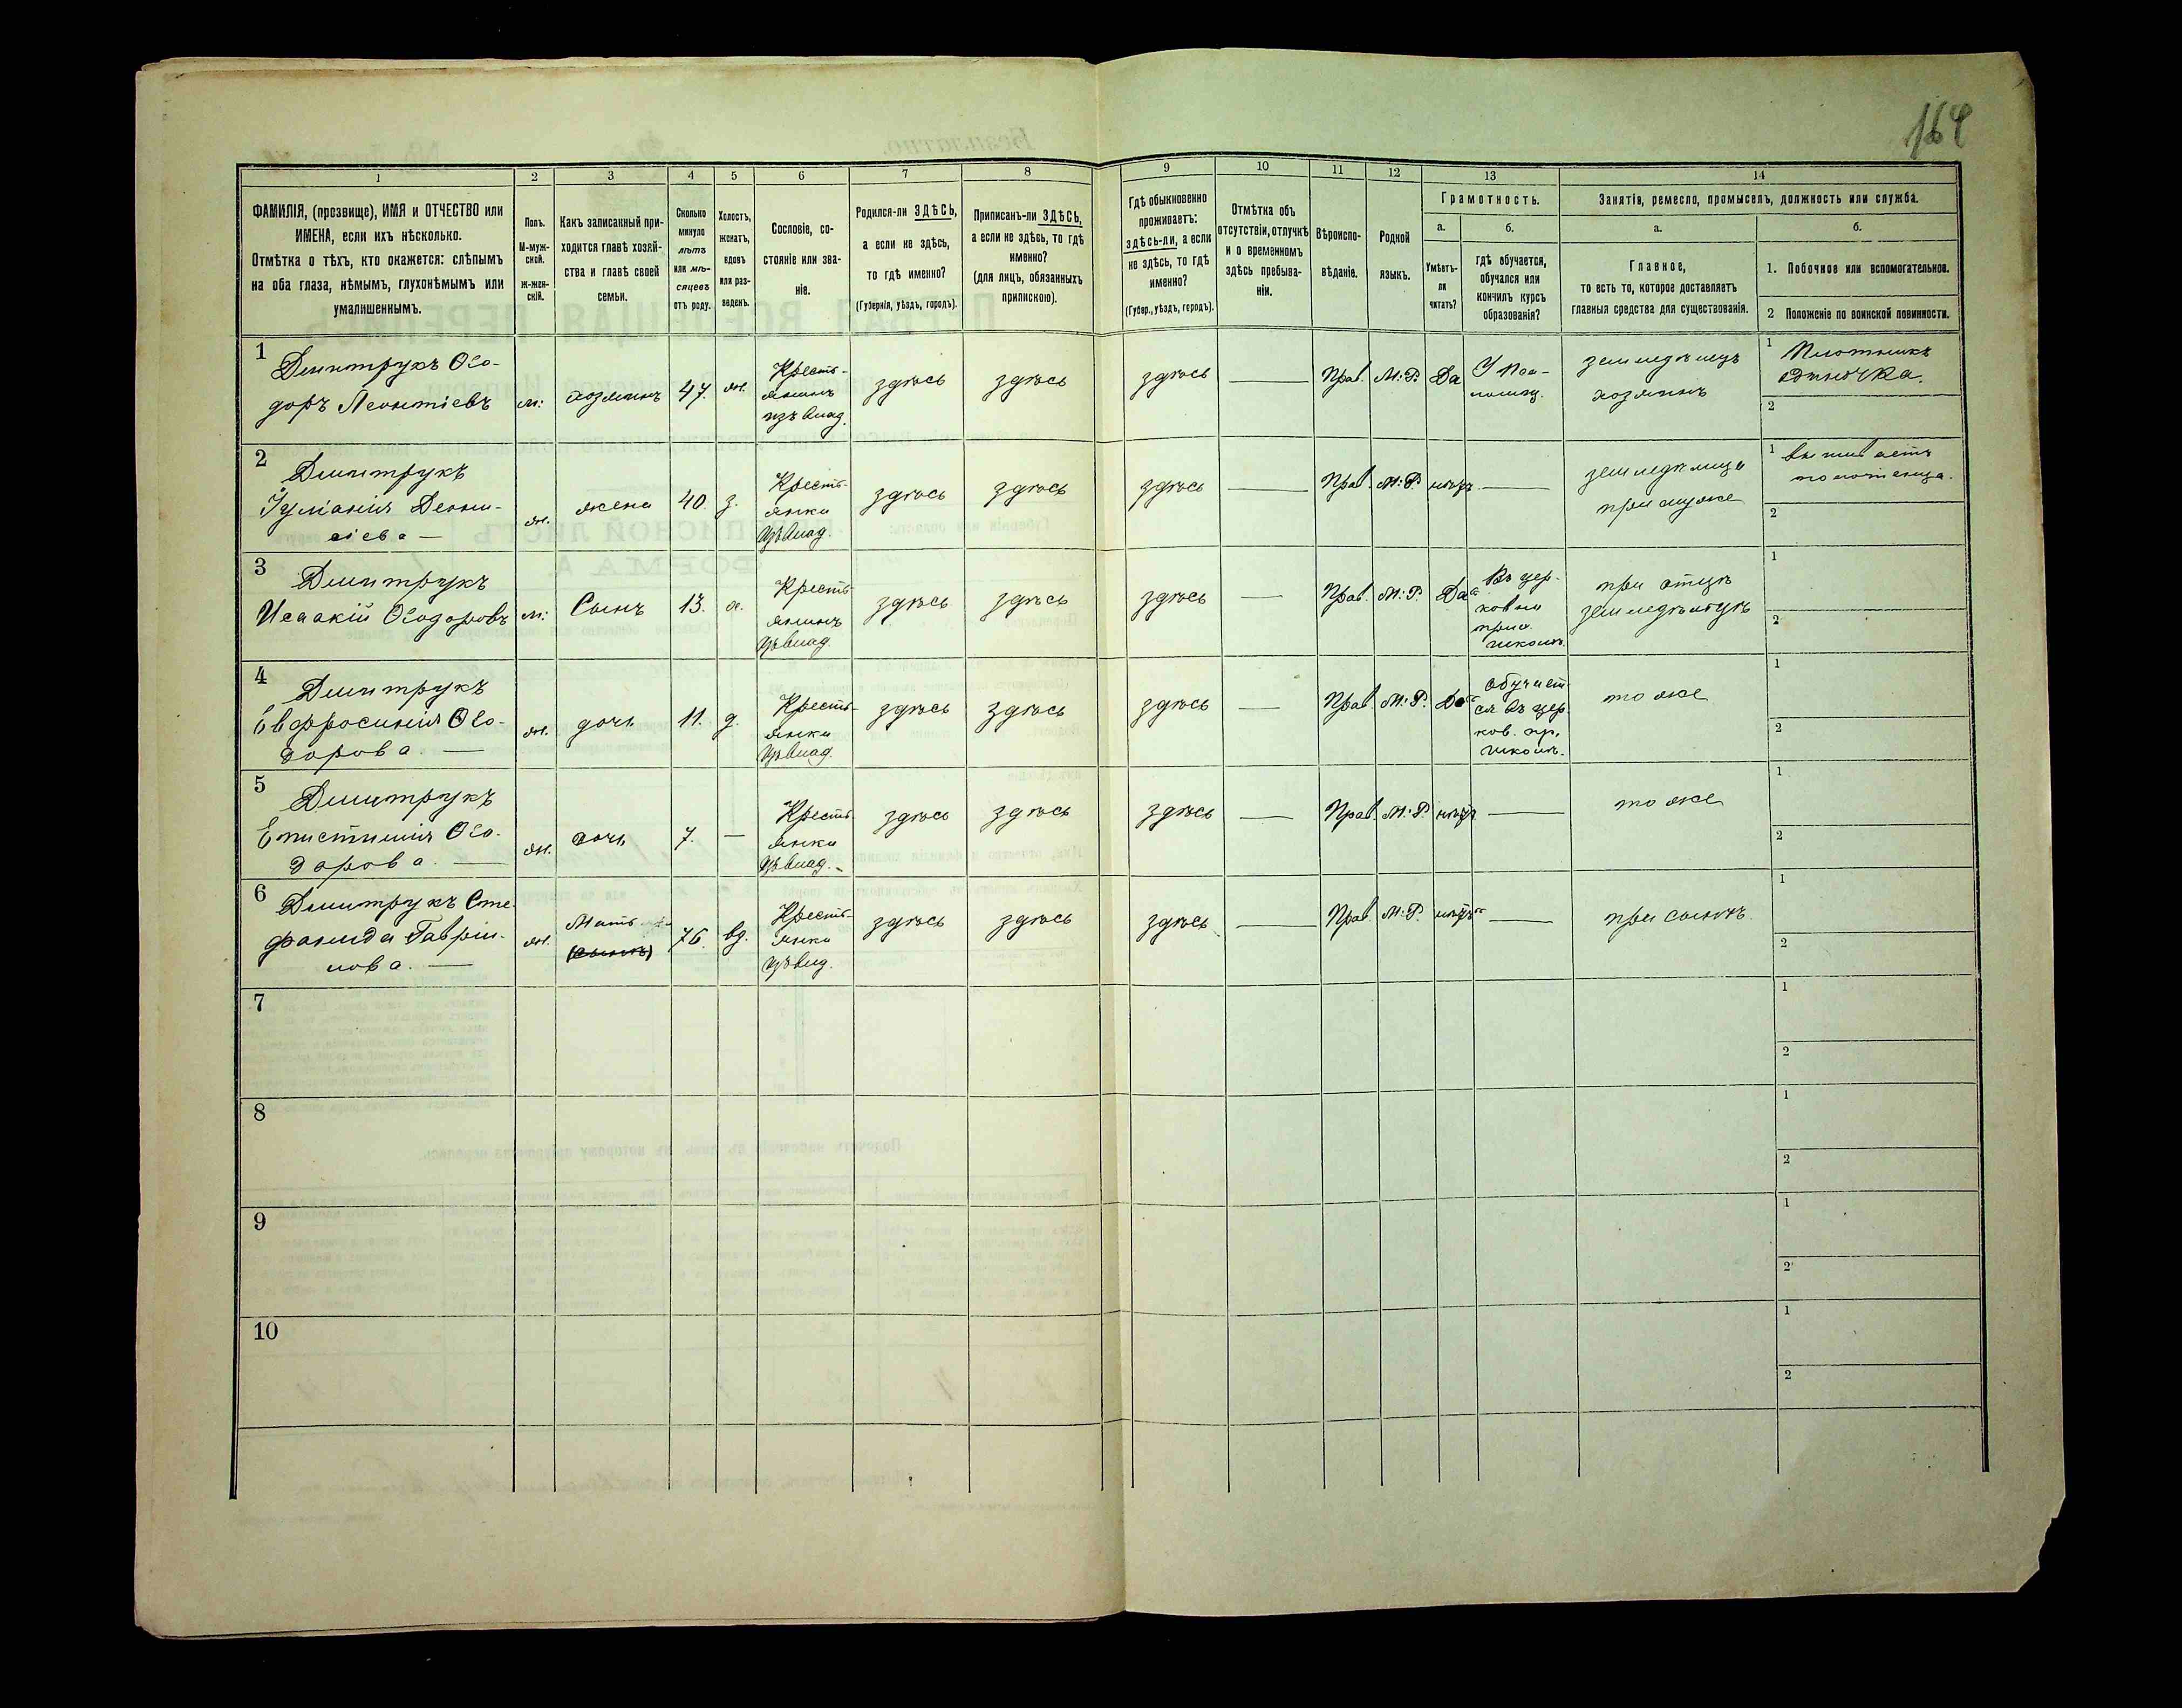 164
1
2
3
4
5
6
7
8
9
10
11
12
13
14
ФАМИЛІЯ, (прозвище), ИМЯ и ОТЧЕСТВО или
ИМЕНА, если ихъ нѣсколько.
Отмѣтка о тѣхъ, кто окажется: слѣпымъ
на оба глаза, нѣмымъ, глухонѣмымъ или
умалишеннымъ.
Полъ.
М-муж-
ской.
Ж-жен-
скій.
Какъ записанный при-
ходится главѣ хозяй-
ства и главѣ своей
семьи.
Сколько
минуло
лѣтъ
или мѣ-
сяцевъ
отъ роду.
Холостъ,
женатъ,
вдовъ
или раз-
веденъ.
Сословіе, со-
стояніе или зва-
ніе.
Родился-ли ЗДѢСЬ,
а если не здѣсь,
то гдѣ именно?
(Губернія, уѣздъ, городъ).
Приписанъ-ли ЗДѢСЬ,
а если не здѣсь, то гдѣ
именно?
(для лицъ, обязанныхъ
припискою).
Гдѣ обыкновенно
проживаетъ:
здѣсь-ли, а если
не здѣсь, то гдѣ
именно?
(Губер., уѣздъ, городъ).
Отмѣтка объ
отсутствіи, отлучкѣ
и о временномъ
здѣсь пребыва-
ніи.
Вѣроиспо-
вѣданіе.
Родной
языкъ.
Грамотность.
а.
б.
Умѣетъ-
ли
читать?
гдѣ обучается,
обучался или
кончилъ курсъ
образованія?
Занятія, ремесло, промыселъ, должность или служба.
а.
б.
Главное,
то есть то, которое доставляетъ
главныя средства для существованія.
1. Побочное или вспомогательное.
2 Положеніе по воинской повинности.
1
Дмитрукъ Ѳео-
доръ Леонтіевъ
м:
хозяинъ
47.
ж.
Кресть-
янинъ
изъ влад.
здѣсь
здѣсь
здѣсь
Прав.
М: Р.
Да
земледѣлецъ
хозяинъ
1
Плотникъ
одиночка.
2
2
Дмитрукъ
Іуліанія Деони-
сіева
ж.
жена
40.
з.
Кресть-
янка
изъ влад.
здѣсь
здѣсь
здѣсь
Прав.
М: Р.
нѣтъ
земледѣлица
при мужѣ
1
вышиваетъ
полотенца.
2
3
Дмитрукъ
Исаакій Ѳеодоровъ
м:
Сынъ
13.
х.
Кресть-
янинъ
изъ влад.
здѣсь
здѣсь
здѣсь
Прав.
М: Р.
Да
Въ цер-
ковно
прих.
школѣ.
при отцѣ
земледѣльцѣ
1
2
4
Дмитрукъ
Евфросинія Ѳео-
дорова.
ж.
дочь
11.
д.
Кресть-
янка
изъ влад.
здѣсь
здѣсь
здѣсь
Прав.
М: Р.
Да
обучает-
ся въ цер-
ков. пр.
школѣ.
то же
1
2
5
Дмитрукъ
Епистимія Ѳео-
дорова.
ж.
дочь
7.
Кресть-
янка
изъ влад.
здѣсь
здѣсь
здѣсь
Прав.
М: Р.
нѣтъ
то же
1
2
6
Дмитрукъ Сте-
фанида Гаврии-
лова.
ж.
Мать
76.
вд.
Кресть-
янка
изъ влд.
здѣсь
здѣсь
здѣсь
Прав.
М: Р.
нѣтъ
при сынѣ
1
2
7
1
2
8
1
2
9
1
2
10
1
2